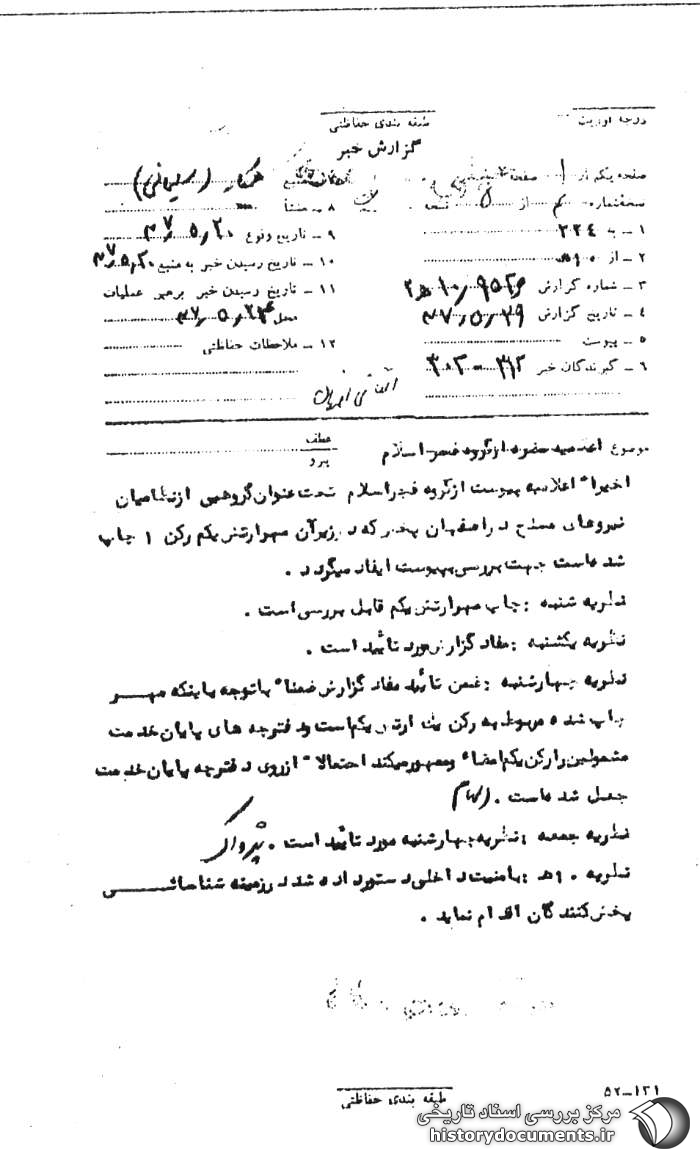 درجه اوریت
طبقه بندی حفاظتی
گزارش خبر
صفحه یکم از ۱ صفحه
نسخه شماره از ۵ نسخه
۱ ـ به ۳۳۴
۲ ـ از ۱۰ ه
۳ ـ شماره گزارش
۴ ـ تاریخ گزارش
۵ ـ پیوست
۶ ـ گیرندگان خبر ۳۱۲ - ۳۰۲
منبع همکار (سلیمانی)
۸ ـ منشأ
۹ ـ تاریخ وقوع
۱۰ ـ تاریخ رسیدن خبر به منبع
۱۱ ـ تاریخ رسیدن خبر برهبر عملیات
محل
۱۲ ـ ملاحظات حفاظتی
موضوع اعلامیه مضره از گروه فجر اسلام
عطف
پیرو
اخیراً اعلامیه پیوست از گروه فجر اسلام تحت عنوان گروهی از نظامیان
نیروهای مسلح در اصفهان پخش که در زیر آن مهر ارتش یکم رکن ۱ چاپ
شده است جهت بررسی بپیوست ایفاد میگردد .
نظریه شنبه : چاپ مهر ارتش یکم قابل بررسی است .
نظریه یکشنبه : مفاد گزارش مورد تائید است .
نظریه چهارشنبه : ضمن تائید مفاد گزارش ضمناً باتوجه باینکه مهر
چاپ شده مربوط به رکن یک ارتش یکم است و دفترچه های پایان خدمت
مشمولین را رکن یکم امضاء و ممهور میکند احتمالاً از روی دفترچه پایان خدمت
جعل شده است . الهام
نظریه جمعه : نظریه چهارشنبه مورد تائید است . پژواک
نظریه ۱۰ ه : بامنیت داخلی دستور داده شد در زمینه شناسائی
پخش کنندگان اقدام نماید .
۱۲۱ـ۵۲
طبقه بندی حفاظتی
مرکز بررسی اسناد تاریخی
historydocuments.ir